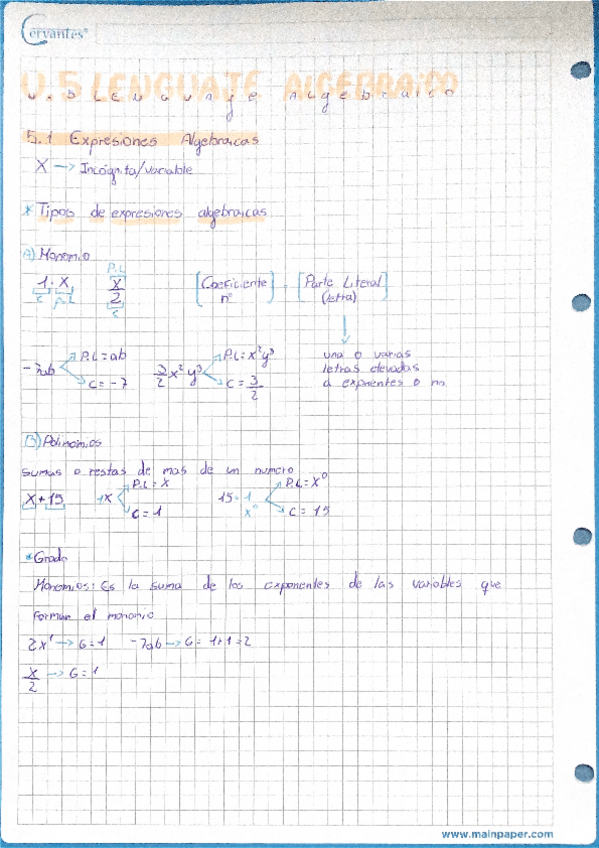 Cervantes®
U.5 LENGUAJE ALGEBRAICO
5.1 Expresiones Algebraicas
X → Incógnita/variable
* Tipos de expresiones algebraicas
A) Monomio
1 · X
C P.L
P.L
X/2
C
[Coeficiente nº] · [Parte Literal (letra)]
↓
una o varias
letras elevadas
a exponentes o
-7ab → P.L = ab
→ C = -7
3/2 x² y³ → P.L = x²y³
→ C = 3/2
B) Polinomios
sumas o restas de mas de un numero
X + 15
1x → P.L = X
→ C = 1
15 · 1 x⁰ → P.L = X⁰
→ C = 15
* Grado
Monomios: Es la suma de los exponentes de las variables que
forman el monomio
2x¹ → G = 1 -7ab → G = 1+1=2
X/2 → G = 1
www.mainpaper.com